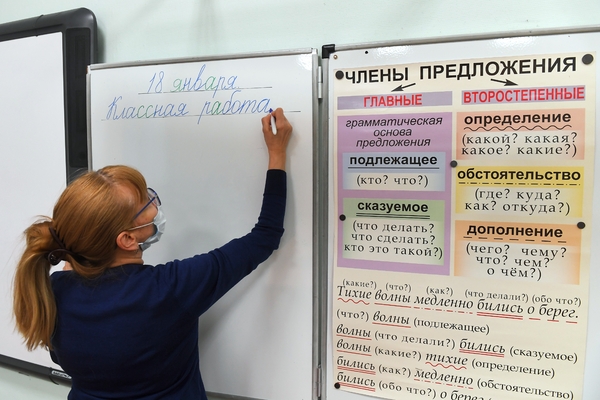 18 января
Классная работа
ЧЛЕНЫ ПРЕДЛОЖЕНИЯ
ГЛАВНЫЕ
грамматическая
основа
предложения
подлежащее
(кто? что?)
сказуемое
(что делать?
что сделать?
кто это такой?)
ВТОРОСТЕПЕННЫЕ
определение
(какой? какая?
какое? какие?)
обстоятельство
(где? куда?
как? откуда?)
дополнение
(чего? чему?
что? чем?
о чём?)
(какие?) (что?) (как?) (что делали?) (обо что?)
Тихие волны медленно бились о берег.
(что?) волны (подлежащее)
волны (что делали?) бились (сказуемое)
волны (какие?) тихие (определение)
бились (как?) медленно (обстоятельство)
бились (обо что?) о берег